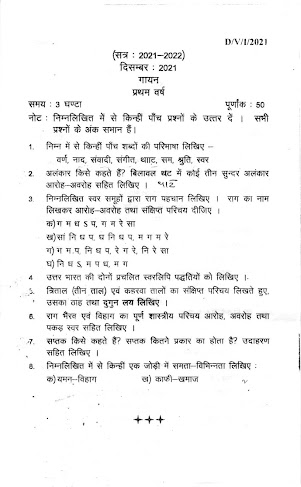 D/V/I/2021
(सत्र : 2021–2022)
दिसम्बर : 2021
गायन
प्रथम वर्ष
समय : 3 घण्टा पूर्णांक : 50
नोट : निम्नलिखित में से किन्हीं पाँच प्रश्नों के उत्तर दें । सभी
प्रश्नों के अंक समान हैं।
1. निम्न में से किन्हीं पाँच शब्दों की परिभाषा लिखिए –
वर्ण, नाद, संवादी, संगीत, थााट, सम, श्रुति, स्वर
2. अलंकार किसे कहते हैं? बिलावल थट में कोई तीन सुन्दर अलंकार
आरोह–अवरोह सहित लिखिए ।
3. निम्नलिखित स्वर समूहों द्वारा राग पहचान लिखिए । राग का नाम
लिखकर आरोह–अवरोह तथा संक्षिप्त परिचय दीजिए ।
क) ग म ध S प, ग म रे सा
ख) सां नि ध प, ध नि ध प, म ग म रे
ग) भ म.प, नि ध प, रे ग रे, नि रे सा
घ) नि ध S, म प ध, म ग
4. उत्तर भारत की दोनों प्रचलित स्वरलिपि पद्धतियों को लिखिए ।
5. त्रिताल (तीन ताल) एवं कहरवा तालों का संक्षिप्त परिचय लिखते हुए,
उसका ठाह तथा दुगुन लय लिखिए ।
6. राग भैरव एवं विहाग का पूर्ण शास्त्रीय परिचय आरोह, अवरोह तथा
पकड़ स्वर सहित लिखिए ।
7. सप्तक किसे कहते हैं? सप्तक कितने प्रकार का होता है? उदाहरण
सहित लिखिए ।
8. निम्नलिखित में से किन्हीं एक जोड़ी में समता–विभिन्नता लिखिए :
क) यमन–विहाग ख) काफी–खमाज
+++